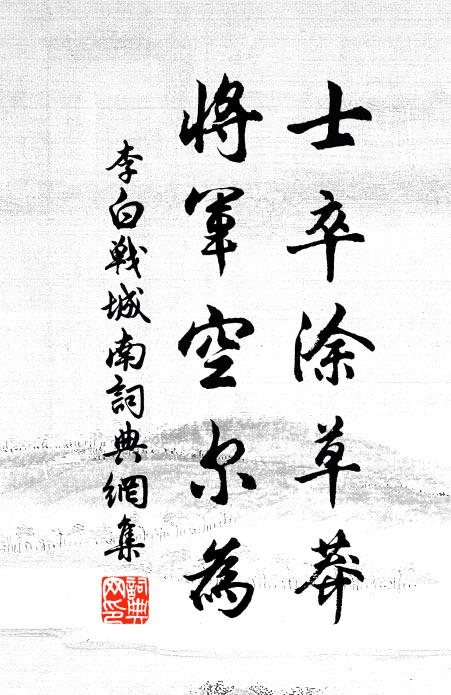 士卒涂草莽
将軍空尔為
李白戰城南詞典網集
詞典
网印